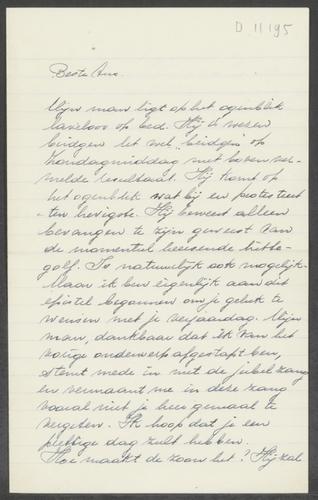 D 11195
Beste Ans.
Mijn man ligt op het ogenblik
laveloos op bed. Hij is wezen
bridgen let wel "bridgen" op
zondagmiddag met boven ver-
melde resultaat. Hij komt op
het ogenblik wat bij en protesteert
ten hevigste. Hij beweert alleen
bevangen te zijn geweest van
de momenteel heersende hitte-
golf. Is natuurlijk ook mogelijk.
Maar ik ben eigenlijk aan dit
epistel begonnen om je geluk te
wensen met je verjaardag. Mijn
man, dankbaar dat ik van het
vorige onderwerp afgestapt ben,
stemt mede in met de jubelzang
en vermaant me in deze zang
vooral niet je heer gemaal te
vergeten. Ik hoop dat je een
prettige dag zult hebben.
Hoe maakt de zoon het? Hij zal